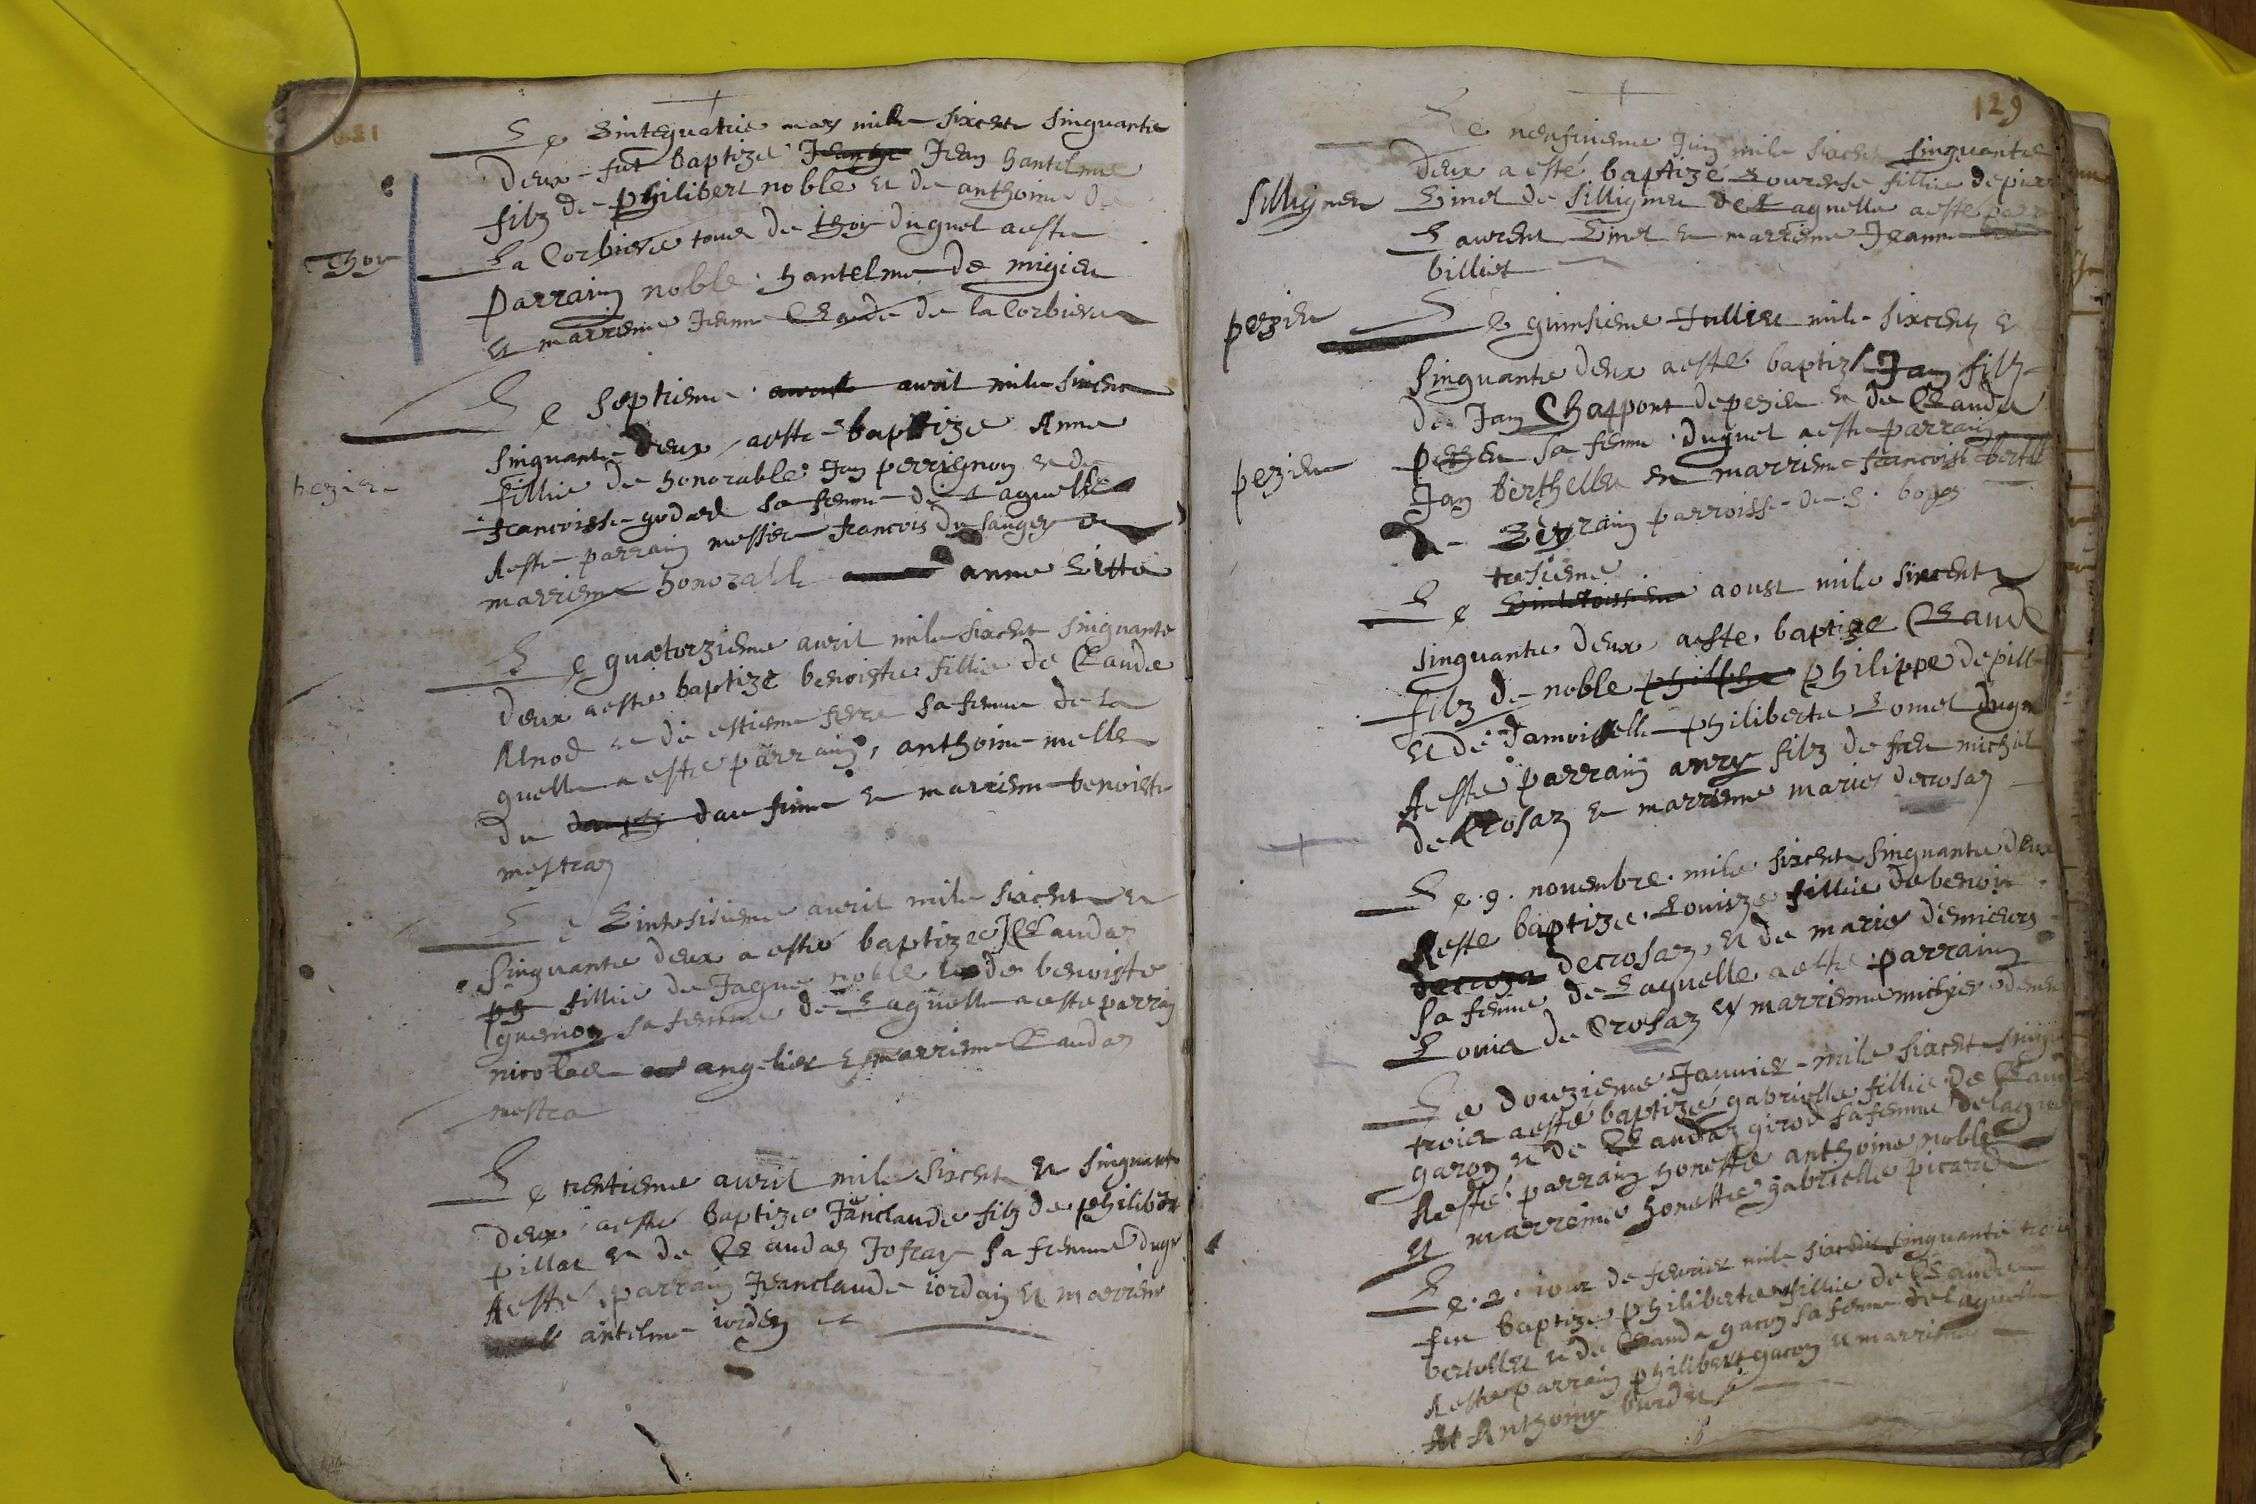 Le Vintequatrie mars mile sixcent singuante
deux fut baptizé Jean hantelme
filz de philibert noble et de anthoine de
La Corbiere tous de thoy duquel a este
Thoy
parrain noble hantelme de migieu
et marreme Jeanne Claude de la Corbiere
Le septieme avril mile sixcent
singuante deux a este baptize Anne
fillie de honorable Jan perrignon et de
pezieu
francoisse godard sa femme de laquelle
A este parrain messire francois du saugey et
marrieme honorable anne Litte
Le quatorzieme avril mile sixcent singuante
deux a este baptize benoiste fillie de Claude
Alnod et de estieme ferre sa femme de la
quelle a este parrain anthoine melle
du daufine et marrieme benoiste
mestraz
Le Vintesisieme avril mile sixcent et
singuante deux a esté baptizé Claudaz
fillie de Jaque noble et de benoiste
guenon sa femme de Laquelle a este parrain
nicolas angelier et marrieme Claudaz
mestra
Le trentieme avril mile sixcent et singuante
deux a esté baptize Janclaude filz de philibert
pillat et de Claudaz Jofray sa femme duqu
A esté parrain Jeanclaude iordain et marrieme
antelme iorden
129
Le neufvieme Juin mile sixcent singuante
deux a esté baptizé Lourense fillie de pier
Silligneu
Vinet de Silligneu de Laquelle a este par
Laurent Vinet et marrieme Jeanne
billiet
pezieu
Le quinsieme Jullier mile sixcent et
singuante deux a esté baptizé Jan filz
de Jan Chappont de pezieu et de Claude
pezieu sa femme duquel a este parrain
pezieu
Jan berthellet et marrieme francoise bertel
de Veyrain parroisse de S. bois
tresieme
Le aoust mile sixcent
singuante deux a este baptize Claude
filz de noble philippe de pill
et de damoiselle philiberte Lomel duqu
A este parrain anry filz de feu michel
deCrosaz et marrieme marie decrosaz
Le .9. novembre mile sixcent singuante deux
A este baptize Louize fillie de benoit
decrosaz et de marie demieurs
sa femme de Laquelle a este parrain
Louis de Crosaz et marrieme michiere deme
Le douzieme Janvier mile sixcent singu
trois a esté baptizé gabrielle fillie de Claud
garon et de Claudaz girod sa femme de laque
A esté parrain honeste anthoine noble
et marreine honeste gabrielle picard
Le .2. iour de fevrier mile sixcent singuante trois
fut baptize philiberte fillie de Claude
bertollet et de Claude gacon sa femme de laquelle
A este parrain philibert gacon et marrieme
At Anthoine burdet